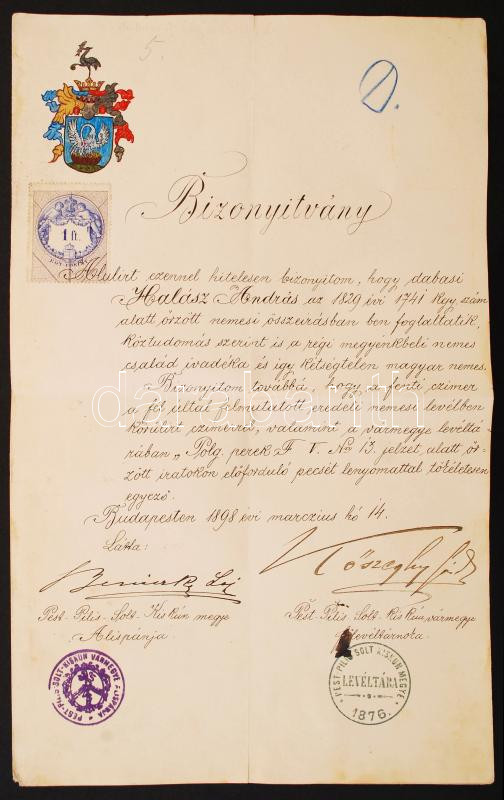 5.
D.
Bizonyitvány
1 ft.
Alulirt ezennel hitelesen bizonyitom, hogy dabasi
Halász András az 1829 évi 1741 kgy. szám
alatt őrzött nemesi összeirásban ben foglaltatik,
köztudomás szerint is a régi megyénkbeli nemes
család ivadéka és igy kétségtelen magyar nemes.
Bizonyitom továbbá, hogy a fenti czimer
a fél által felmutatott eredeti nemesi levélben
körülirt czimerrel, valamint a vármegye levéltá-
rában „Polg. perek F. V. No 13. jelzet alatt őr-
zött iratokon előforduló pecsét lenyomattal tökéletesen
egyező.
Budapesten 1898 évi marczius hó 14.
Látta:
Beniczky
Kőszeghy
Pest-Pilis-Solt-Kiskún megye
Alispánja
Pest-Pilis-Solt-Kiskún vármegye
főlevéltárnoka
PEST-PILIS-SOLT-KISKUN VÁRMEGYE ALISPÁNJA
PEST PILIS SOLT KISKUN MEGYE
LEVÉLTÁRA
1876.
darabanth